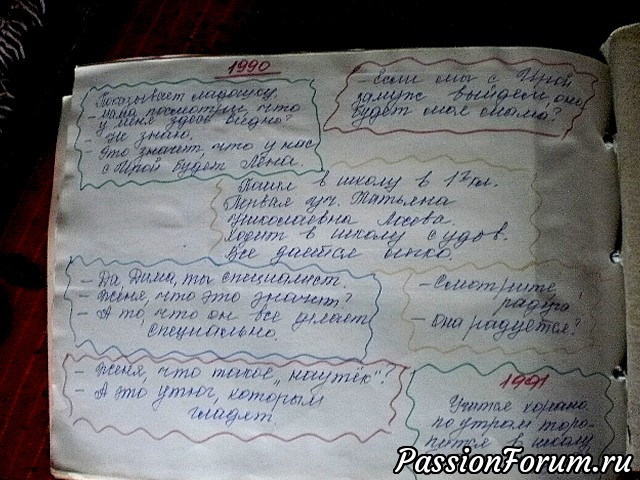 1990
Показывает ладошку.
- Мама посмотри, что
у меня здесь видно?
- Не знаю.
- Это значит, что у нас
с Ирой будет Лена.
- Если мы с Ирой
замуж выйдем, она
будет моя мама?
Пошел в школу в 1ый кл.
Первая уч. Татьяна
Николаевна Лосева.
Ходит в школу с удов.
Все дается легко.
- Да, Дима, ты специалист.
- Женя, что это значит?
- А то, что он все делает
специально.
- Смотрите
радуга
- Она радуется?
- Женя, что такое "наутёк"?
- А это утюг, которым
гладят.
1991
Учится хорошо
по утрам торо-
пится в школу
PassionForum.ru